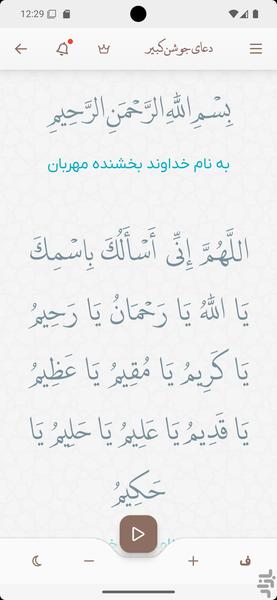 12:29
دعای جوشن کبیر
بِسْمِ اللَّهِ الرَّحْمَنِ الرَّحِيمِ
به نام خداوند بخشنده مهربان
اللَّهُمَّ إِنِّي أَسْأَلُكَ بِاسْمِكَ
يَا اللَّهُ يَا رَحْمَانُ يَا رَحِيمُ
يَا كَرِيمُ يَا مُقِيمُ يَا عَظِيمُ
يَا قَدِيمُ يَا عَلِيمُ يَا حَلِيمُ يَا
حَكِيمُ
ف + −
بازار